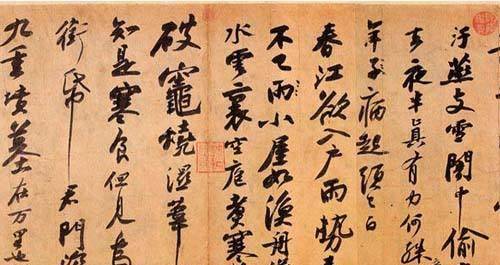 汙燕支雪闇中偷
去夜半真有力何殊
年子病起須已白
春江欲入戶雨勢
不已雨小屋如漁舟
水雲裏空庖煮寒
破竈燒濕葦
知是寒食但見烏
銜帋君門深
九重墳墓在万里也